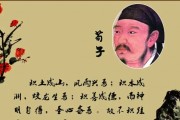 荀子
积土成山，风雨兴焉；积水成
渊，蛟龙生焉；积善成德，而神
明自得，圣心备焉。故不积跬